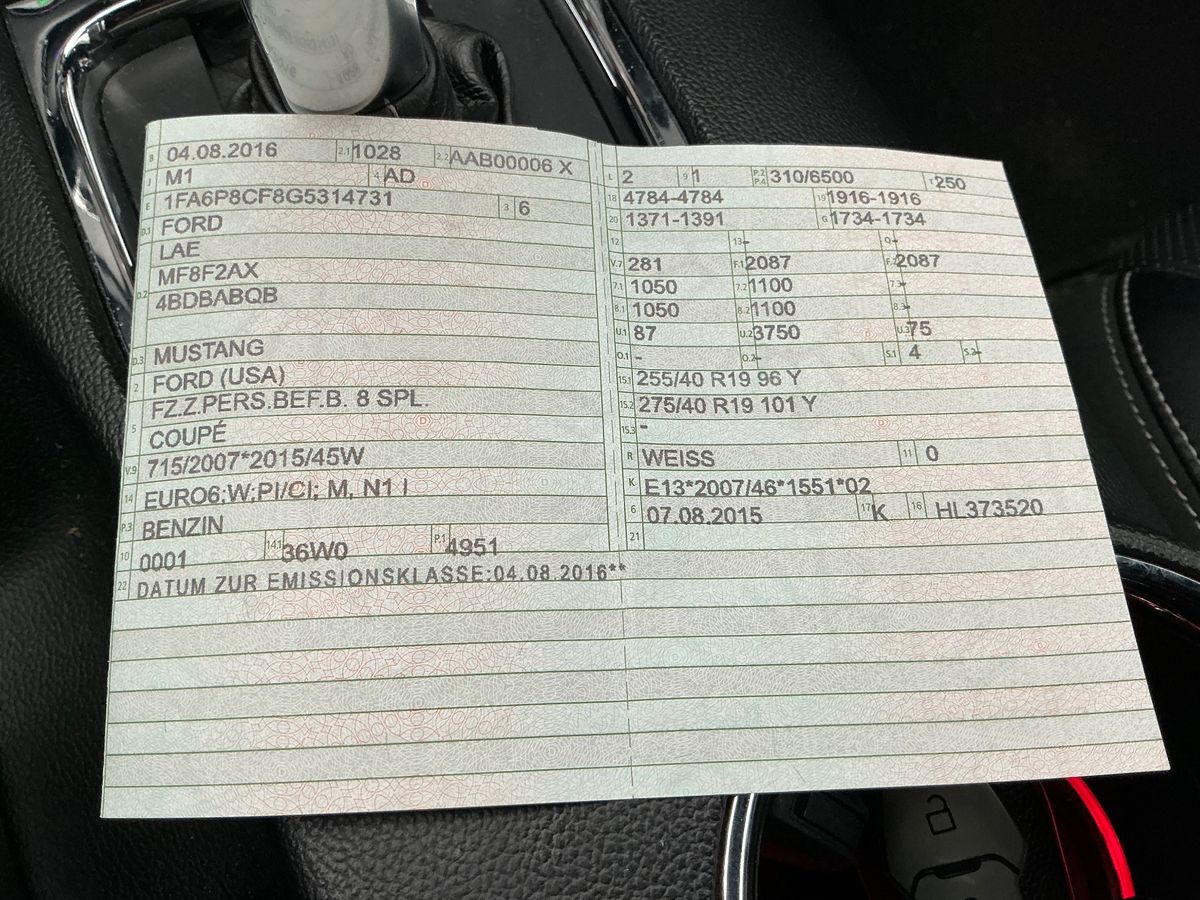 B 04.08.2016 2.1 1028 2.2 AAB00006 X
J M1 4 AD
E 1FA6P8CF8G5314731 3 6
D.1 FORD
LAE
MF8F2AX
D.2 4BDBABQB
D.3 MUSTANG
2 FORD (USA)
FZ.Z.PERS.BEF.B. 8 SPL.
5 COUPÉ
V.9 715/2007*2015/45W
14 EURO6;W;PI/CI; M, N1 I
P.3 BENZIN
10 0001 14.1 36W0 P.1 4951
22 DATUM ZUR EMISSIONSKLASSE:04.08.2016**
L 2 9 1 P.2 P.4 310/6500 T 250
18 4784-4784 19 1916-1916
20 1371-1391 G 1734-1734
12 13 - Q -
V.7 281 F.1 2087 F.2 2087
7.1 1050 7.2 1100 7.3 -
8.1 1050 8.2 1100 8.3 -
U.1 87 U.2 3750 U.3 75
O.1 - O.2 - S.1 4 S.2 -
15.1 255/40 R19 96 Y
15.2 275/40 R19 101 Y
15.3 -
R WEISS 11 0
K E13*2007/46*1551*02
6 07.08.2015 17 K 16 HL373520
21